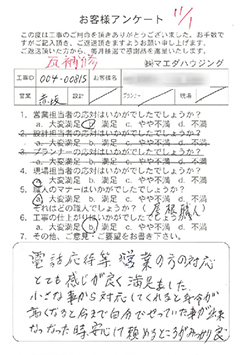 お客様アンケート
11/1
この度は工事のご用命を頂きありがとうございました。お手数で
すがご記入頂き、ご返送頂きますようお願い申し上げます。
ご返送頂いた方から、毎月抽選で感謝品を進呈いたします。
㈱マエダハウジング
工事ID 004-00815 お客様名
営業 設計 プランナー 現場
1. 営業担当者の応対はいかがでしたでしょうか?
a. 大変満足 b. 満足 c. やや不満 d. 不満
2. 設計担当者の応対はいかがでしたでしょうか?
a. 大変満足 b. 満足 c. やや不満 d. 不満
3. プランナーの応対はいかがでしたでしょうか?
a. 大変満足 b. 満足 c. やや不満 d. 不満
4. 現場担当者の応対はいかがでしたでしょうか?
a. 大変満足 b. 満足 c. やや不満 d. 不満
5. 職人のマナーはいかがでしたでしょうか?
a. 大変満足 b. 満足 c. やや不満 d. 不満
それはどの職人でしょうか?
6. 工事の仕上がりはいかがでしたでしょうか?
a. 大変満足 b. 満足 c. やや不満 d. 不満
7. その他、ご意見・ご要望をお書き下さい。
電話応待等 営業の方の対応
とても感じが良く満足ました。
小さな事から対応してくれると